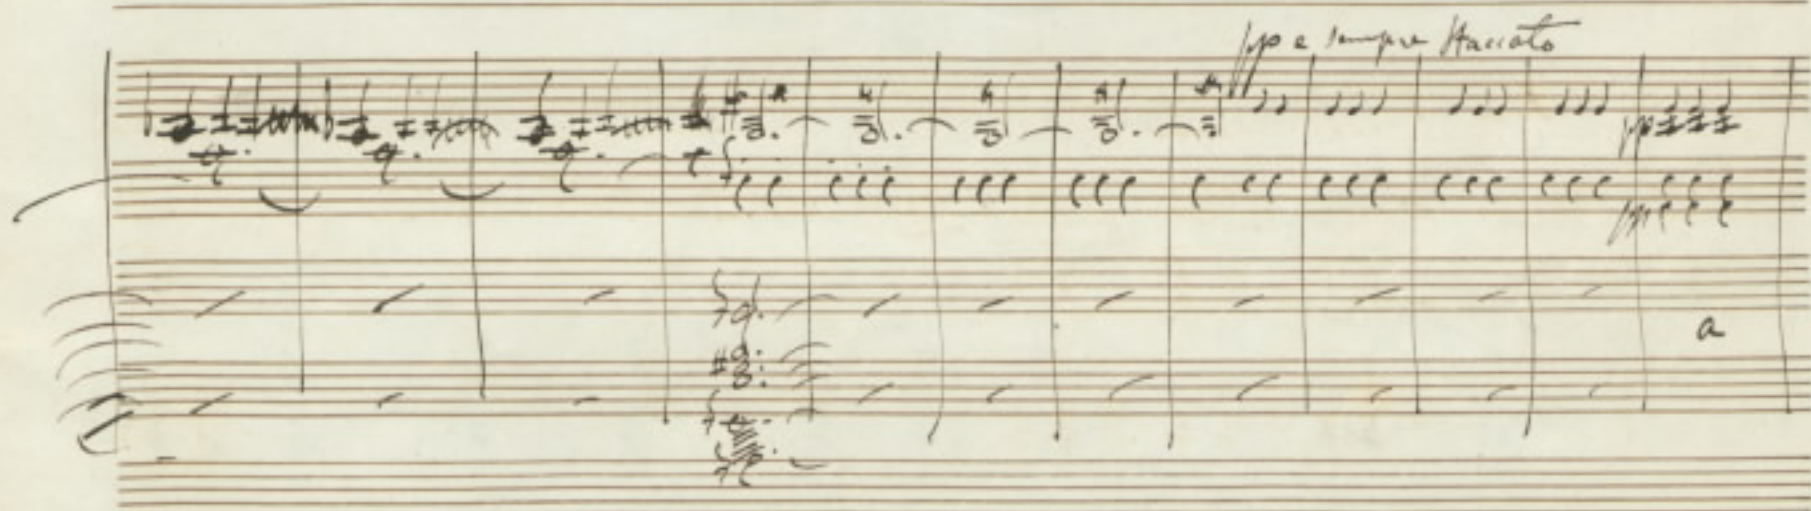 pp e sempre staccato
pp
pp
a